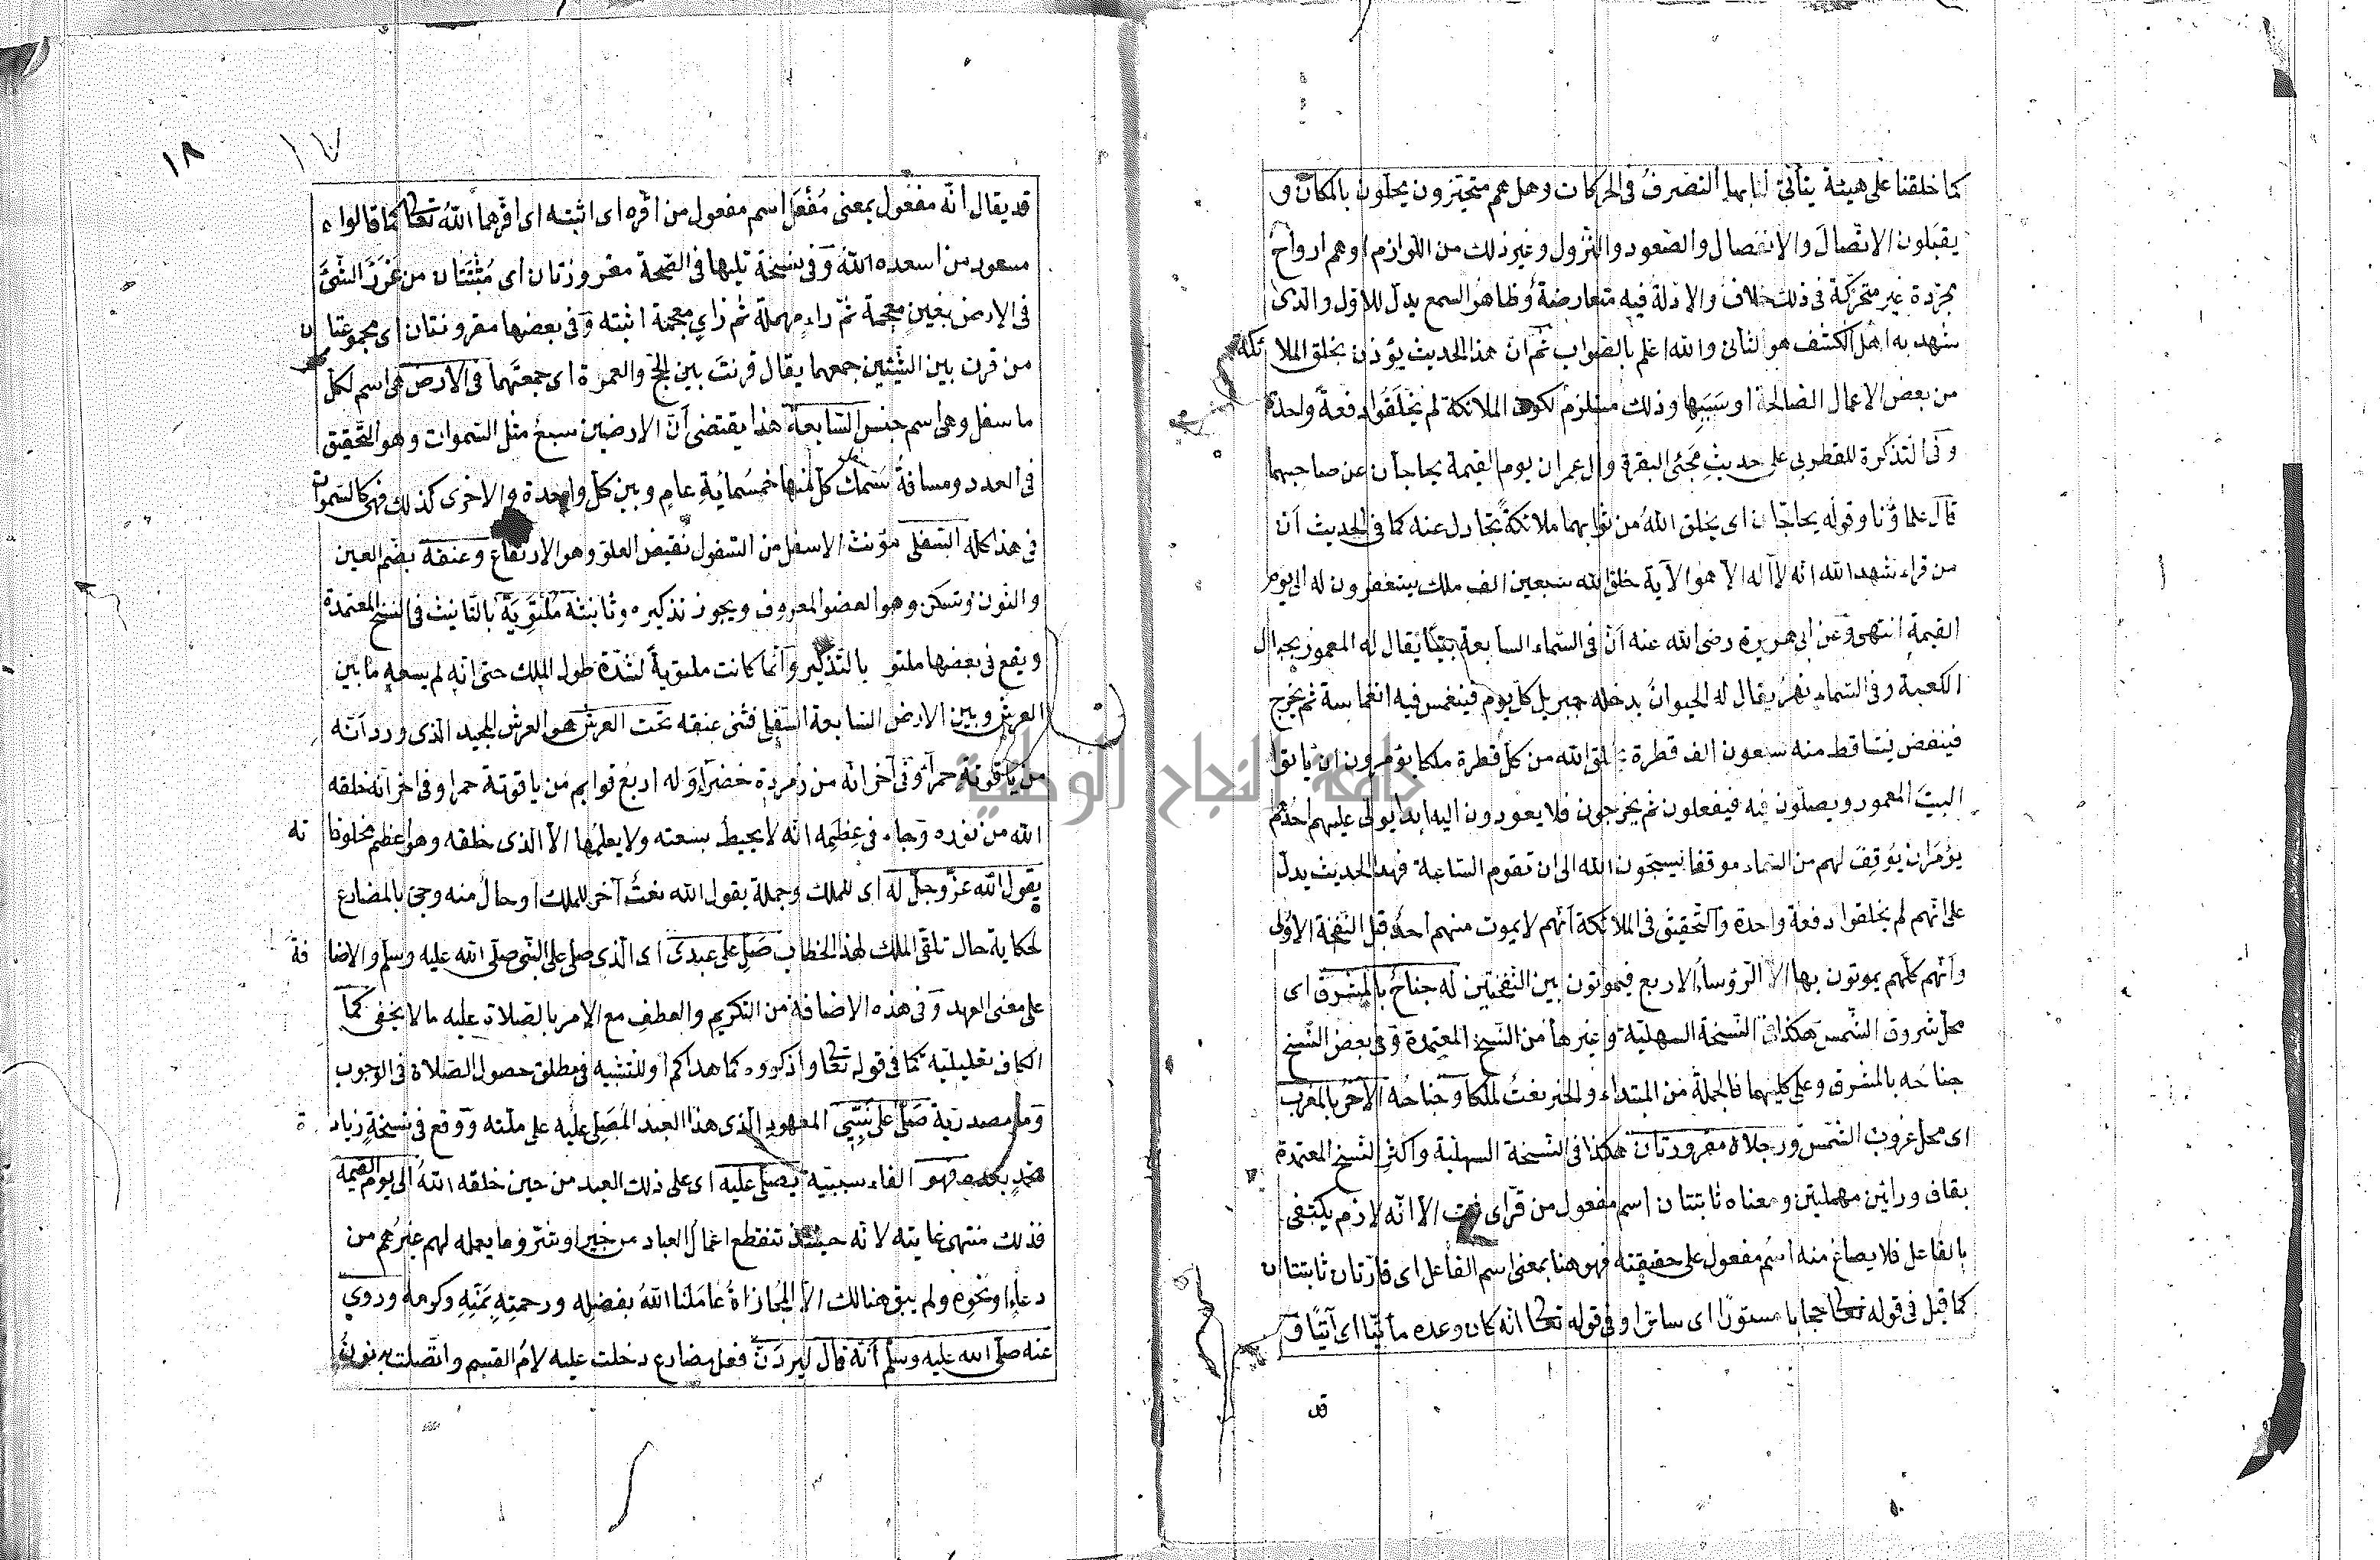 كما خلقنا على هيئة يتأتى لنا بها التصرف في الحركات وهل هم متحيزون يحلون بالمكان و
يقبلون الاتصال والانفصال والصعود والنزول وغير ذلك من اللوازم او هم ارواح
مجردة غير متحركة في ذلك خلاف والادلة فيه متعارضة وظاهر السمع يدل للاول والذى
شهد به اهل الكشف هو الثانى والله اعلم بالصواب ثم ان هذا الحديث يؤذن بخلق الملائكة
من بعض الاعمال الصالحة او سببها وذلك مستلزم لكون الملائكة لم يخلقوا دفعة واحدة
وفي التذكرة للقطربي على حديث مجئ البقرة وال عمران يوم القيمة يحاجان عن صاحبهما
قال علماؤنا وقوله يحاجان اى يخلق الله من ثوابهما ملائكة تجادل عنه كما في الحديث ان
من قراء شهد الله انه لا اله الا هو الآية خلق الله سبعين الف ملك يستغفرون له الى يوم
القيمة انتهى وعن ابى هريرة رضى الله عنه ان في السماء السابعة بيتا يقال له المعمور بحيال
الكعبة وفي السماء نهر يقال له الحيوان يدخله جبريل كل يوم فينغمس فيه انغماسة ثم يخرج
فينفض يتساقط منه سبعون الف قطرة يخلق الله من كل قطرة ملكا يؤمرون ان ياتوا
البيت المعمور ويصلون فيه فيفعلون ثم يخرجون فلا يعودون اليه ابدا يولى عليهم احدهم
يؤمر ان يوقف لهم من السماء موقفا يسبحون الله الى ان تقوم الساعة فهذا الحديث يدل
على انهم لم يخلقوا دفعة واحدة والتحقيق في الملائكة انهم لا يموت منهم احد قبل النفخة الاولى
وانهم كلهم يموتون بها الا الرؤساء الاربع فيموتون بين النفختين له جناح بالمشرق اى
محل شروق الشمس هكذا في النسخة السهلية وغيرها من النسخ المعتمدة وفي بعض النسخ
جناحه بالمشرق وعلى كليهما فالجملة من المبتداء والخبر نعت لملكا وجناحه الآخر بالمغرب
اى محل غروب الشمس ورجلاه مقرورتان هكذا في النسخة السهلية واكثر النسخ المعتمدة
بقاف ورائين مهملتين ومعناه ثابتتان اسم مفعول من قر اى ثبت الا انه لازم يكتفى
بالفاعل فلا يصاغ منه اسم مفعول على حقيقته فهو هنا بمعنى اسم الفاعل اى قارتان ثابتتان
كما قيل في قوله تعالى حجابا مستورا اى ساترا وفي قوله تعالى انه كان وعده مأتيا اى آتيا و
قد
١٧
١٨
قد يقال انه مفعول بمعنى مُفْعَل اسم مفعول من اقره اى اثبته اى اقرهما الله تعالى كما قالوا
مسعود من اسعده الله وفي نسخة تليها في الصحة مغروزتان اى مثبتتان من غرز الشئ
في الارض بغين معجمة ثم راء مهملة ثم زاي معجمة اثبته وفي بعضها مقرونتان اى مجموعتان
من قرن بين الشيئين جمعهما يقال قرنت بين الحج والعمرة اى جمعتهما في الارض هى اسم لكل
ما سفل وهى اسم جنس السابعة هذا يقتضى أن الارضين سبع مثل السموات وهو التحقيق
في العدد ومسافة سمك كل منها خمسمائة عام وبين كل واحدة والاخرى كذلك فهى كالسموات
في هذا كله السفلى مؤنث الاسفل من السفول نقيض العلو وهو الارتفاع وعنقه بضم العين
والنون وتسكن وهو العضو المعروف ويجوز تذكيره وتانيثه ملتوية بالتانيث في النسخ المعتمدة
ويقع في بعضها ملتو بالتذكير وانما كانت ملتوية لشدة طول الملك حتى انه لم يسعه ما بين
العرش وبين الارض السابعة السفلى فثنى عنقه تحت العرش هو العرش المجيد الذى ورد أنه
من ياقوتة حمرآء وفي آخر انه من زمردة خضرآء وله اربع قوايم من ياقوتة حمرا وفي اخر انه خلقه
الله من نوره وجاء في عظمه انه لا يحيط بسعته ولا يعلمها الا الذى خلقه وهو اعظم مخلوقاته
يقول الله عز وجل له اى للملك وجملة يقول الله نعت آخر للملك او حال منه وجئ بالمضارع
لحكاية حال تلقى الملك لهذا الخطاب صل على عبدى اى الذى صلى على النبى صلى الله عليه وسلم والاضافة
على معنى العهد وفي هذه الاضافة من التكريم والعطف مع الامر بالصلاة عليه ما لا يخفى كما
الكاف تعليلية كما في قوله تعالى واذكروه كما هداكم او للتشبيه في مطلق حصول الصلاة في الوجوب
وما مصدرية صلى على نبيى المعهود الذى هذا العبد المصلى عليه على ملته ووقع في نسخة زيادة
محمد بعده فهو الفاء سببية يصلى عليه اى على ذلك العبد من حين خلقه الله الى يوم القيمة
فذلك منتهى غايته لانه حينئذ تنقطع اعمال العباد من خير او شر وما يعمله لهم غيرهم من
دعاء او نحوه ولم يبق هنالك الا المجازاة عاملنا الله بفضله ورحمته بمنه وكرمه وروي
عنه صلى الله عليه وسلم أنه قال ليردن فعل مضارع دخلت عليه لام القسم واتصلت به نون
جامعة النجاح الوطنية